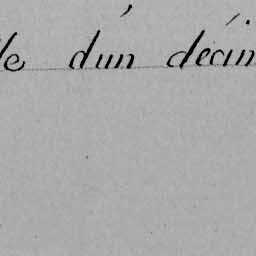 le d'un décim